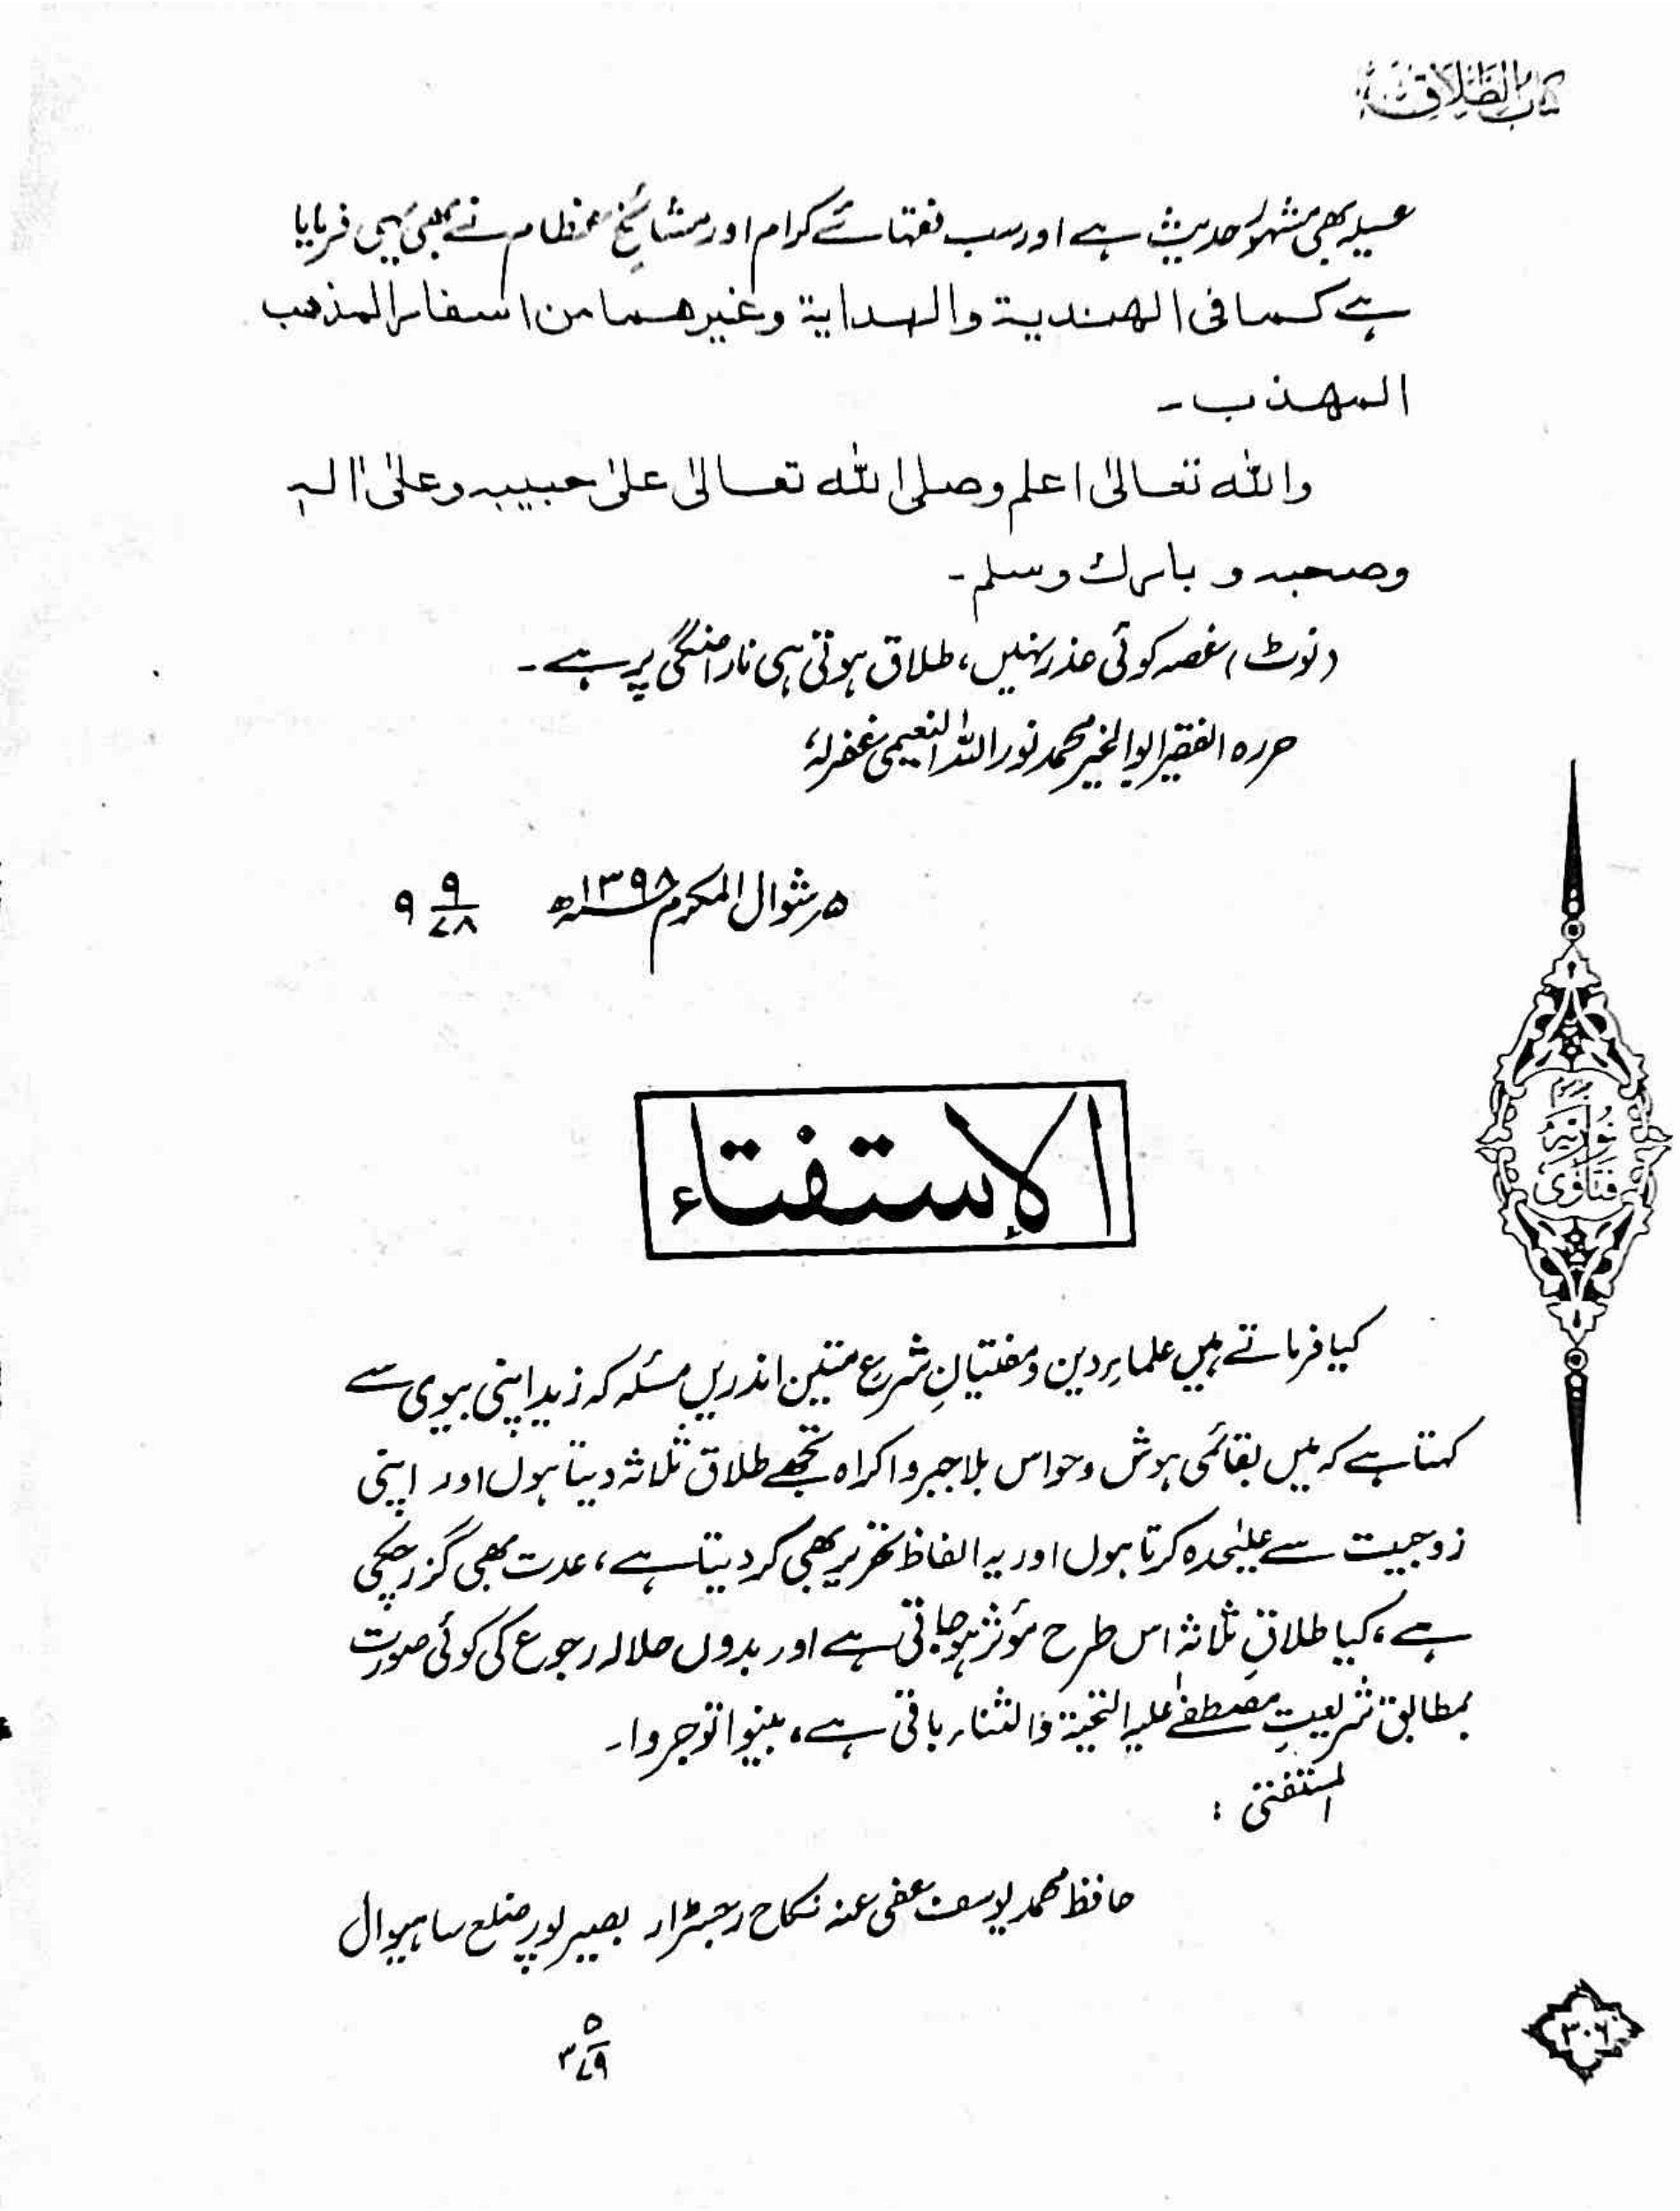 کتاب الطلاق
عسیلہ بھی مشہور حدیث ہے اور سب فقہائے کرام اور مشائخ عظام نے بھی یہی فرمایا
ہے کما فی الھندیۃ والہدایۃ وغیرھما من اسفار المذھب
المھذب۔
واللہ تعالیٰ اعلم وصلی اللہ تعالیٰ علیٰ حبیبہ وعلیٰ اٰلہ
وصحبہ و بارك وسلم۔
(نوٹ) غصہ کوئی عذر نہیں، طلاق ہوتی ہی ناراضگی پر ہے۔
حررہ الفقیر ابوالخیر محمد نور اللہ النعیمی غفرلہٗ
۵ر شوال المکرم ۱۳۹۸ھ ۹/۷۸ ۹
الاستفتاء
کیا فرماتے ہیں علماءِ دین و مفتیانِ شرع متین اندریں مسئلہ کہ زید اپنی بیوی سے
کہتا ہے کہ میں بقائمی ہوش وحواس بلاجبر و اکراہ تجھے طلاق ثلاثہ دیتا ہوں اور اپنی
زوجیت سے علیٰحدہ کرتا ہوں اور یہ الفاظ تحریر بھی کر دیتا ہے، عدت بھی گزر چکی
ہے، کیا طلاقِ ثلاثہ اس طرح مؤثر ہو جاتی ہے اور بدوں حلالہ رجوع کی کوئی صورت
بمطابق شریعتِ مصطفےٰ علیہ التحیۃ والثناء باقی ہے، بینوا توجروا۔
المستفتی :
حافظ محمد یوسف عفی عنہ نکاح رجسٹرار بصیرپور ضلع ساہیوال
۵/۷۹ ۳
فتاویٰ نوریہ
۳۰۶